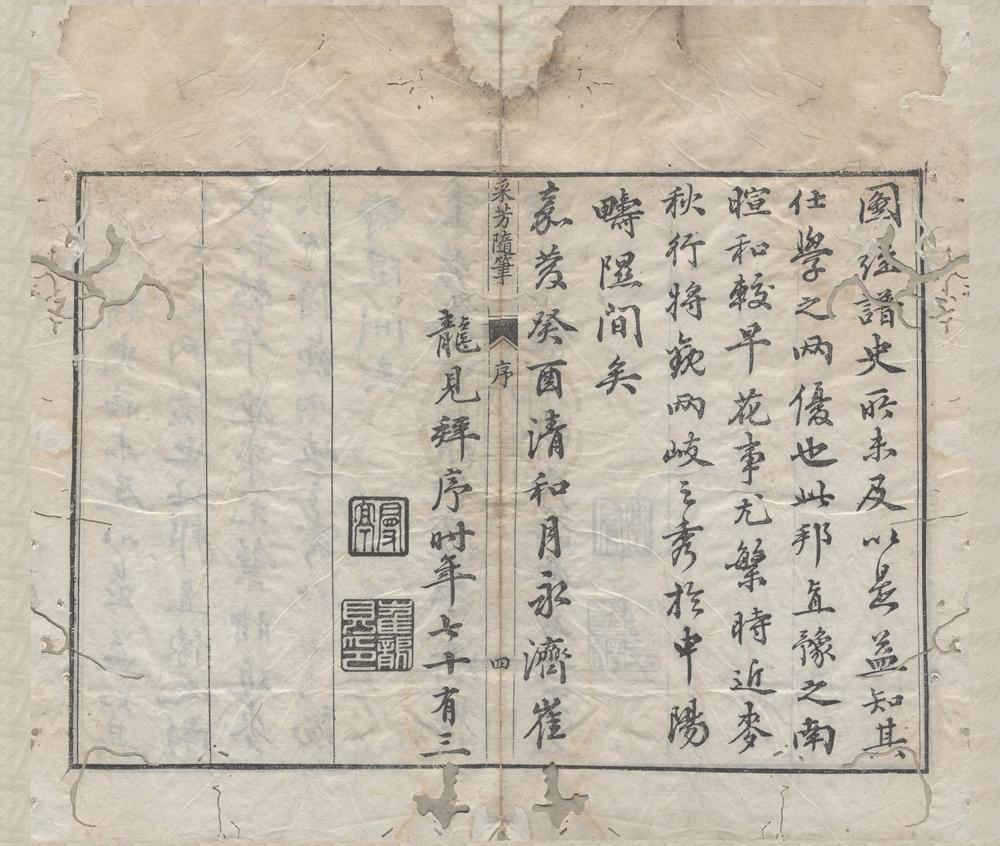 國經譜史所未及以是益知其
仕學之兩優也此邦直豫之南
暄和較早花事尤繁時近麥
秋行將覩兩岐之秀於中陽
疇隰間矣
嘉慶癸酉清和月永濟崔
采芳隨筆 序 四
龍見拜序時年七十有三
崔龍見印